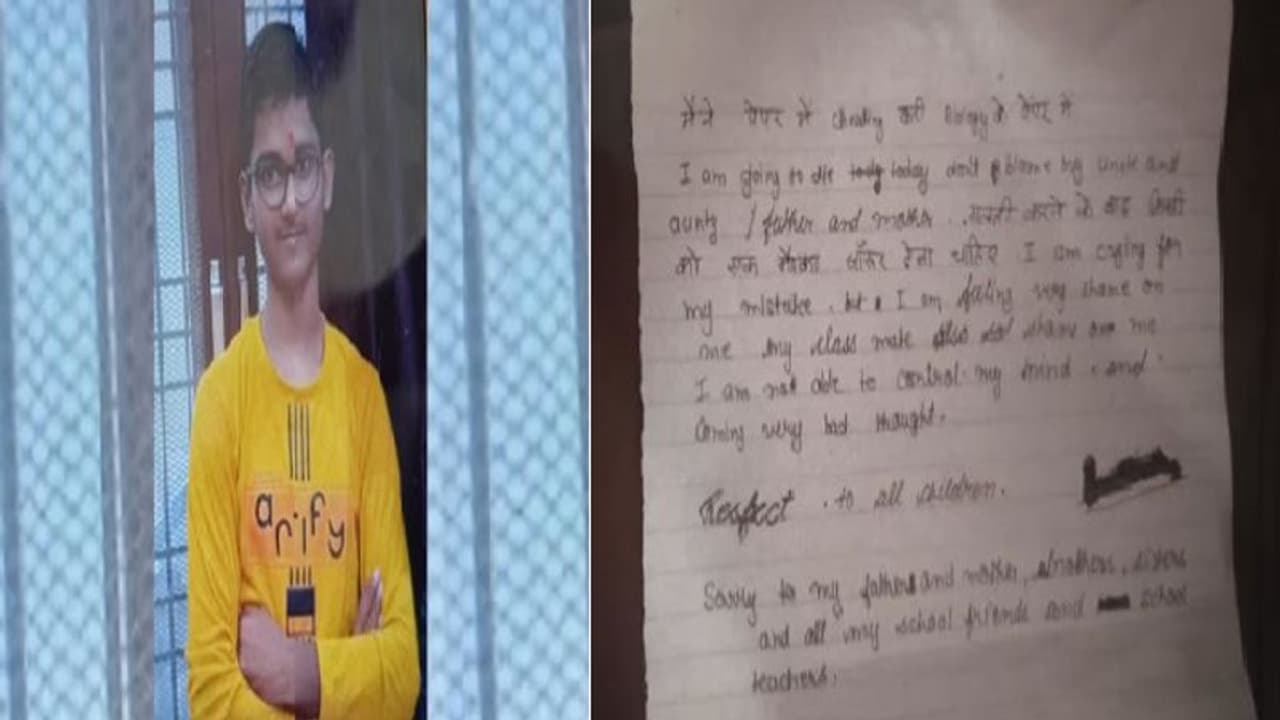 arify
मैंने पेपर में cheating करी Biology के पेपर में
I am going to die today don't blame my uncle and
aunty / father and mother . गलती करने के बाद किसी
को एक मौका जरूर देना चाहिए I am crying for
my mistake . but I am feeling very shame on
me my class mate also shame on me
I am not able to control my mind . and
Coming very bad thought .
Respect . to all children .
Sorry to my father and mother , brothers , sisters
and all my school friends and school
teachers .